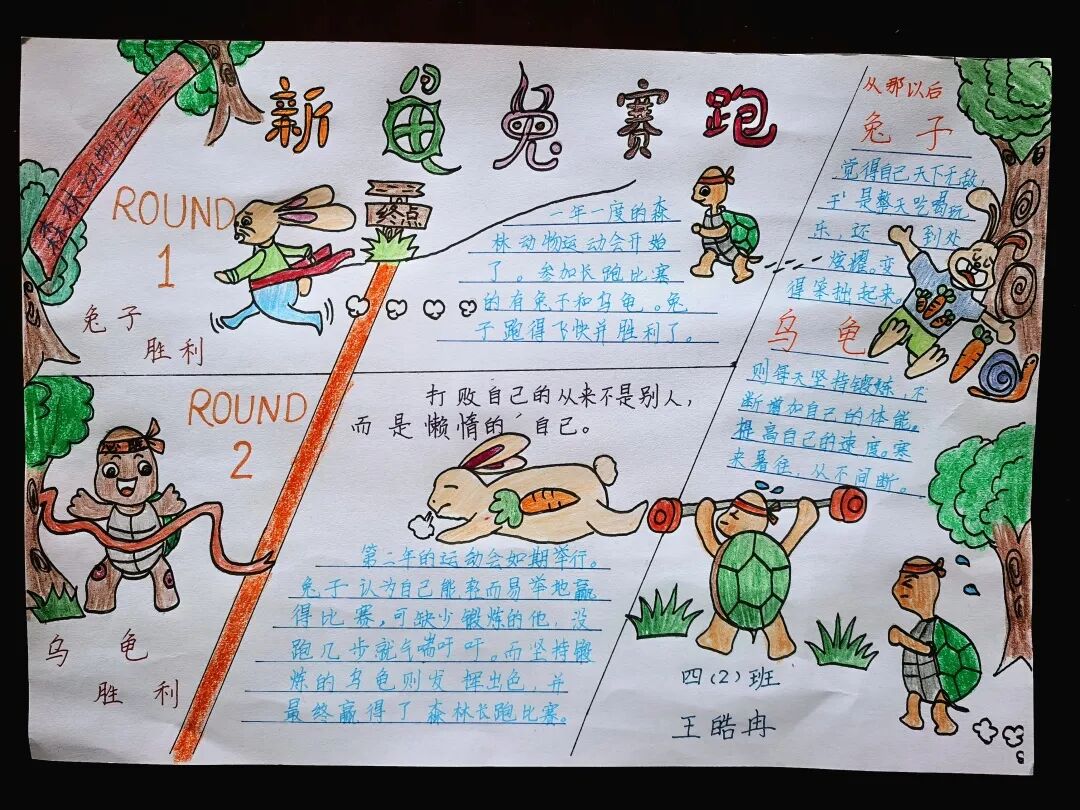 新龟兔赛跑
森林动物运动会
ROUND
1
兔子
胜利
终点
一年一度的森
林动物运动会开始
了。参加长跑比赛
的有兔子和乌龟。兔
子跑得飞快并胜利了。
从那以后
兔子
觉得自己天下无敌,
于是整天吃喝玩
乐,还到处
炫耀。变
得笨拙起来。
乌龟
则每天坚持锻炼,不
断增加自己的体能。
提高自己的速度。寒
来暑往,从不间断。
ROUND
2
乌龟
胜利
打败自己的从来不是别人,
而是懒惰的自己。
第二年的运动会如期举行。
兔子认为自己能轻而易举地赢
得比赛,可缺少锻炼的他,没
跑几步就气喘吁吁。而坚持锻
炼的乌龟则发挥出色,并
最终赢得了森林长跑比赛。
四(2)班
王皓冉